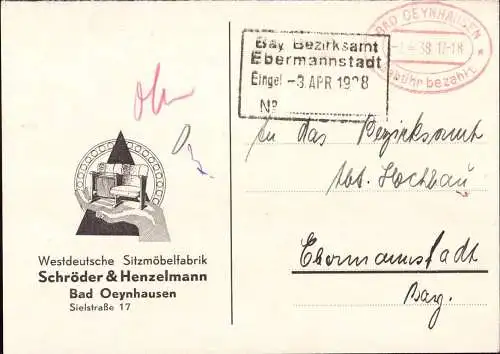 BAD OEYNHAUSEN
-4.38.17-18
Gebühr bezahlt
Bay. Bezirksamt
Ebermannstadt
Eingel. -3.APR 1938
Nº
An das Bezirksamt
Abt. Hochbau
Ebermannstadt
Bay.
Westdeutsche Sitzmöbelfabrik
Schröder & Henzelmann
Bad Oeynhausen
Sielstraße 17